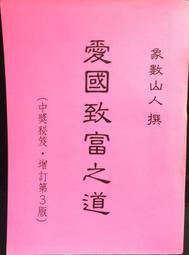 象數山人 撰
愛國致富之道
(中獎秘笈·增訂第3版)